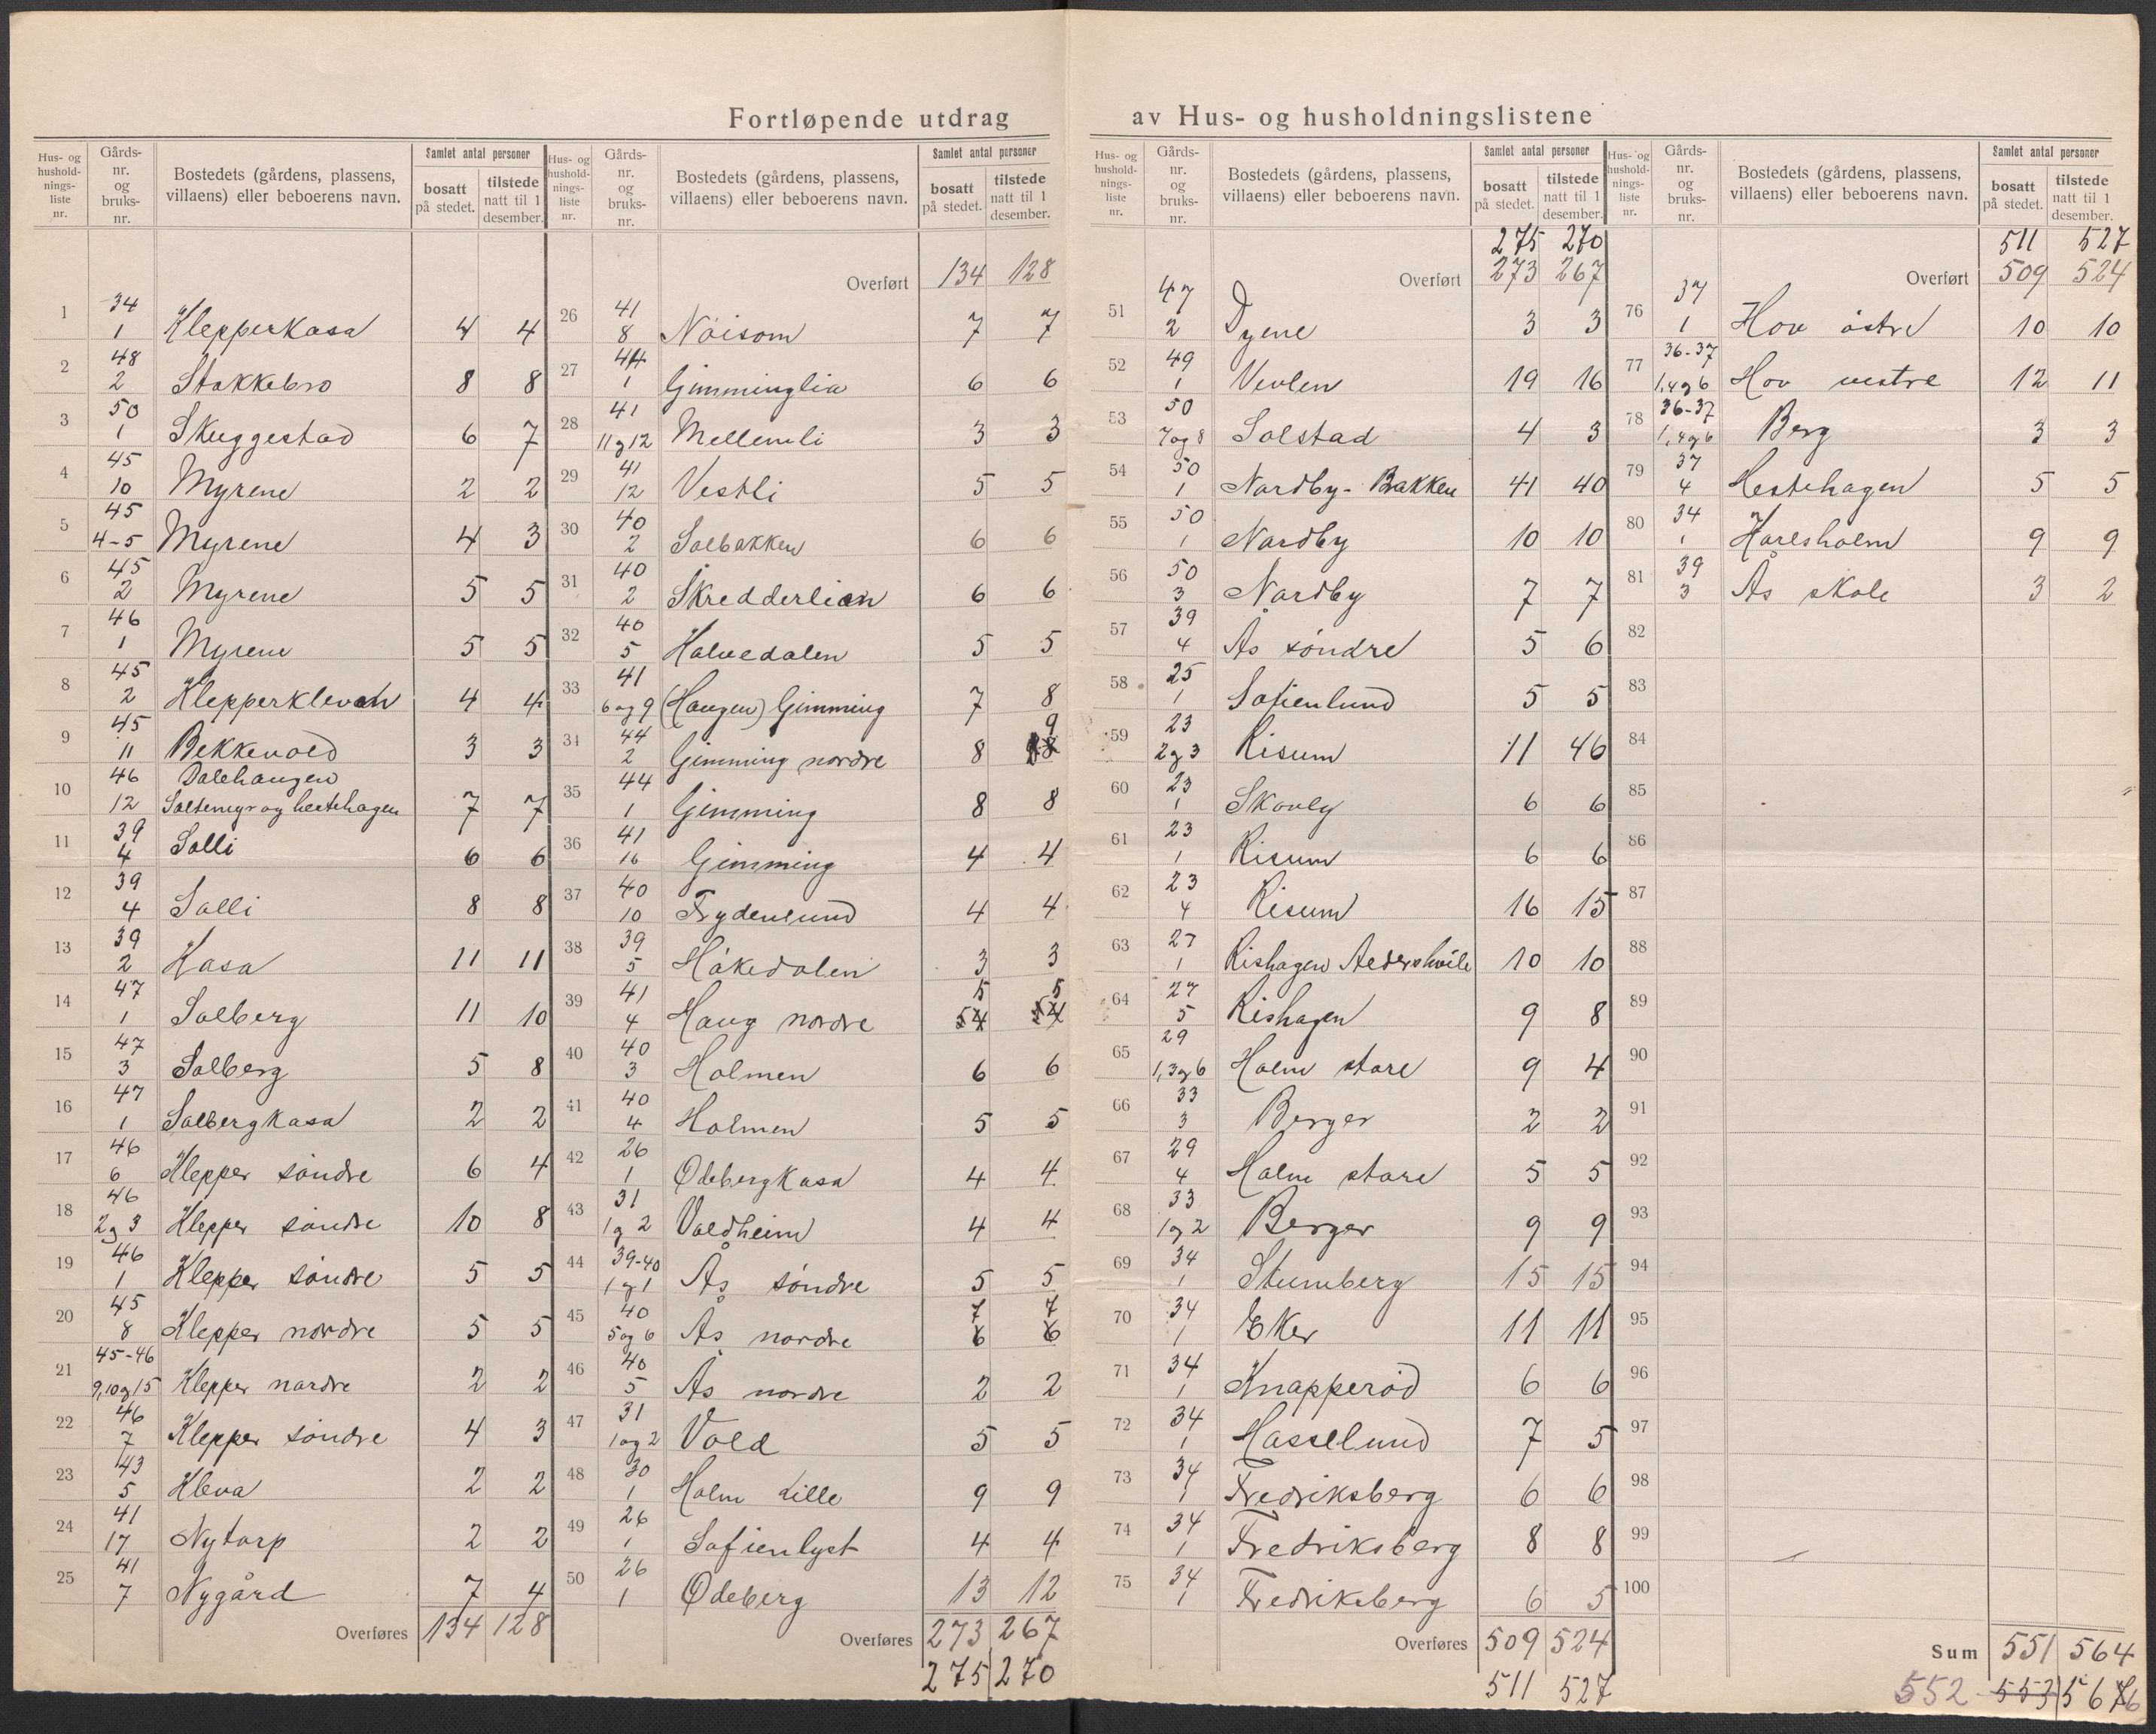 Fortløpende utdrag av Hus- og husholdningslistene
Hus- og hushold-nings-liste nr. | Gårds-nr. og bruks-nr. | Bostedets (gårdens, plassens, villaens) eller beboerens navn. | Samlet antal personer | bosatt på stedet. | tilstede natt til 1 desember.
1 34 1 Klepperkasa 4 4
2 48 2 Stakkebro 8 8
3 50 1 Skuggestad 6 7
4 45 10 Myrene 2 2
5 45 4-5 Myrene 4 3
6 45 2 Myrene 5 5
7 46 1 Myrene 5 5
8 45 2 Klepperklevan 4 4
9 45 11 Bekkevold 3 3
10 46 12 Dalehaugen Saltemyr og hestehagen 7 7
11 39 4 Solli 6 6
12 39 4 Solli 8 8
13 39 2 Kasa 11 11
14 47 1 Solberg 11 10
15 47 3 Solberg 5 8
16 47 1 Solbergkasa 2 2
17 46 6 Klepper søndre 6 4
18 46 2 og 3 Klepper søndre 10 8
19 46 1 Klepper søndre 5 5
20 45 8 Klepper nordre 5 5
21 45-46 9,10 og 15 Klepper nordre 2 2
22 46 7 Klepper søndre 4 3
23 43 5 Kleva 2 2
24 41 17 Nytorp 2 2
25 41 7 Nygård 7 4
Overføres 134 128
Hus- og hushold-nings-liste nr. | Gårds-nr. og bruks-nr. | Bostedets (gårdens, plassens, villaens) eller beboerens navn. | Samlet antal personer | bosatt på stedet. | tilstede natt til 1 desember.
Overført 134 128
26 41 8 Nøisom 7 7
27 44 1 Gimminglia 6 6
28 41 11 og 12 Mellemli 3 3
29 41 12 Vestli 5 5
30 40 2 Solbakken 6 6
31 40 2 Skredderlien 6 6
32 40 5 Halvedalen 5 5
33 41 6 og 9 (Haugen) Gimming 7 8
34 44 2 Gimming nordre 8 9
35 44 1 Gimming 8 8
36 41 16 Gimming 4 4
37 40 10 Frydenlund 4 4
38 39 5 Håkedalen 3 3
39 41 4 Haug nordre 5 5
40 40 3 Holmen 6 6
41 40 4 Holmen 5 5
42 26 1 Ødebergkasa 4 4
43 31 1 og 2 Voldheim 4 4
44 39-40 1 og 1 Ås søndre 5 5
45 40 5 og 6 Ås nordre 7 7 6 6
46 40 5 Ås nordre 2 2
47 31 1 og 2 Vold 5 5
48 30 1 Holm Lille 9 9
49 26 1 Sofienlyst 4 4
50 26 1 Ødeberg 13 12
Overføres 273 267
275 270
Hus- og hushold-nings-liste nr. | Gårds-nr. og bruks-nr. | Bostedets (gårdens, plassens, villaens) eller beboerens navn. | Samlet antal personer | bosatt på stedet. | tilstede natt til 1 desember.
275 270
Overført 273 267
51 47 2 Dyene 3 3
52 49 1 Vevlen 19 16
53 50 7 og 8 Solstad 4 3
54 50 1 Nordby-Bakken 41 40
55 50 1 Nordby 10 10
56 50 3 Nordby 7 7
57 39 4 Ås søndre 5 6
58 25 1 Sofienlund 5 5
59 23 2 og 3 Risum 11 46
60 23 1 Skovly 6 6
61 23 1 Risum 6 6
62 23 4 Risum 16 15
63 27 1 Rishagen Aldershvile 10 10
64 27 5 Rishagen 9 8
65 29 1, 3 og 6 Holm store 9 4
66 33 3 Berger 2 2
67 29 4 Holm store 5 5
68 33 1 og 2 Berger 9 9
69 34 1 Stumberg 15 15
70 34 1 Eker 11 11
71 34 1 Knapperød 6 6
72 34 1 Hasselund 7 5
73 34 1 Fredriksberg 6 6
74 34 1 Fredriksberg 8 8
75 34 1 Fredriksberg 6 5
Overføres 509 524
511 527
Hus- og hushold-nings-liste nr. | Gårds-nr. og bruks-nr. | Bostedets (gårdens, plassens, villaens) eller beboerens navn. | Samlet antal personer | bosatt på stedet. | tilstede natt til 1 desember.
511 527
Overført 509 524
76 37 1 Hov østre 10 10
77 36-37 1,4 og 6 Hov vestre 12 11
78 36-37 1,4 og 6 Berg 3 3
79 37 4 Hestehagen 5 5
80 34 1 Karlsholm 9 9
81 39 3 Ås skole 3 2
82
83
84
85
86
87
88
89
90
91
92
93
94
95
96
97
98
99
100
Sum 551 564
552 553 566